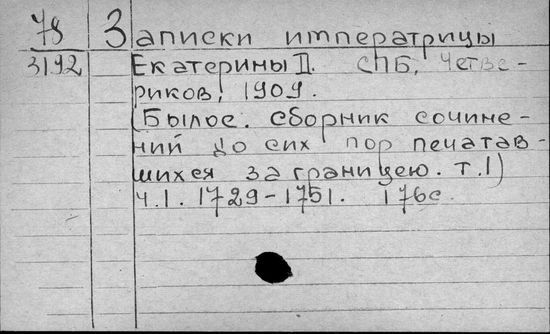 78 Записки императрицы
3192 Екатерины II. СПБ, Четве-
риков, 1909.
(Былое. Сборник сочине-
ний до сих пор печатав-
шихся за границею. т.1)
ч.1. 1729-1751. 176с.